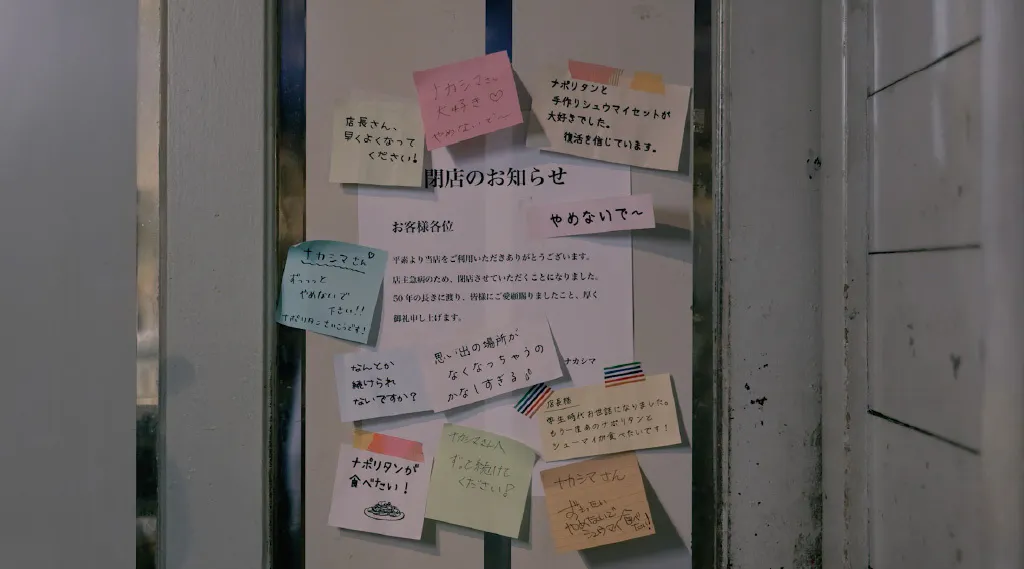 ナカシマさん
大好き♡
やめないで～
ナポリタンと
手作りシュウマイセットが
大好きでした。
復活を信じています。
店長さん、
早くよくなって
ください!
閉店のお知らせ
やめないで～
お客様各位
平素より当店をご利用いただきありがとうございます。
店主急病のため、閉店させていただくことになりました。
50年の長きに渡り、皆様にご愛顧賜りましたこと、厚く
御礼申し上げます。
ナカシマ
ナカシマさん♡
ずっっっと
やめないで
下さい!!
ナポリタンさいこうです!
なんとか
続けられ
ないですか?
思い出の場所が
なくなっちゃうの
かなしすぎる
店長様
学生時代お世話になりました。
もう一度あのナポリタンと
シューマイが食べたいです!
ナポリタンが
食べたい!
ナカシマさんへ
ずっと続けて
ください!
ナカシマさん
やめないで